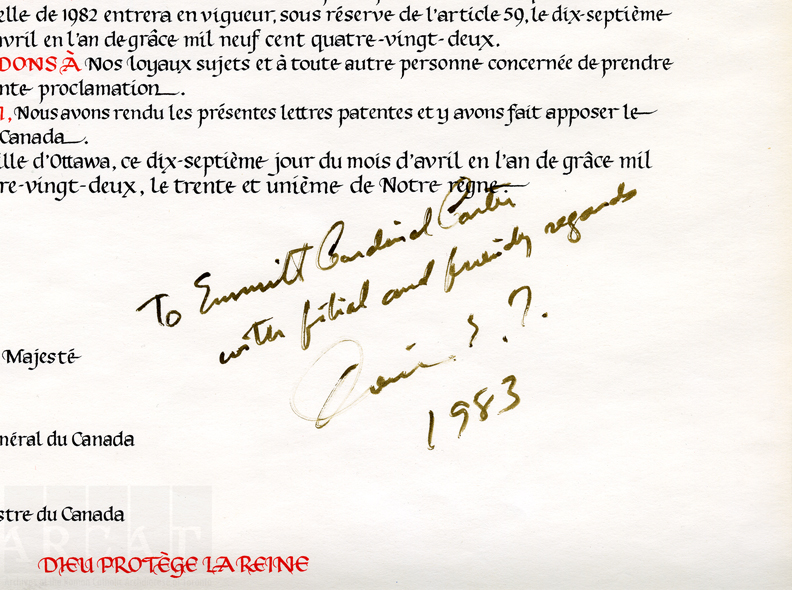 elle de 1982 entrera en vigueur, sous réserve de l'article 59, le dix-septième
avril en l'an de grâce mil neuf cent quatre-vingt-deux.
DONS À Nos loyaux sujets et à toute autre personne concernée de prendre
nte proclamation.
Nous avons rendu les présentes lettres patentes et y avons fait apposer le
Canada.
ille d'Ottawa, ce dix-septième jour du mois d'avril en l'an de grâce mil
re-vingt-deux, le trente et unième de Notre règne.
To Emmitt Cardinal Carter
with filial and friendly regards
1983
Majesté
néral du Canada
stre du Canada
ARCAT
DIEU PROTÈGE LA REINE